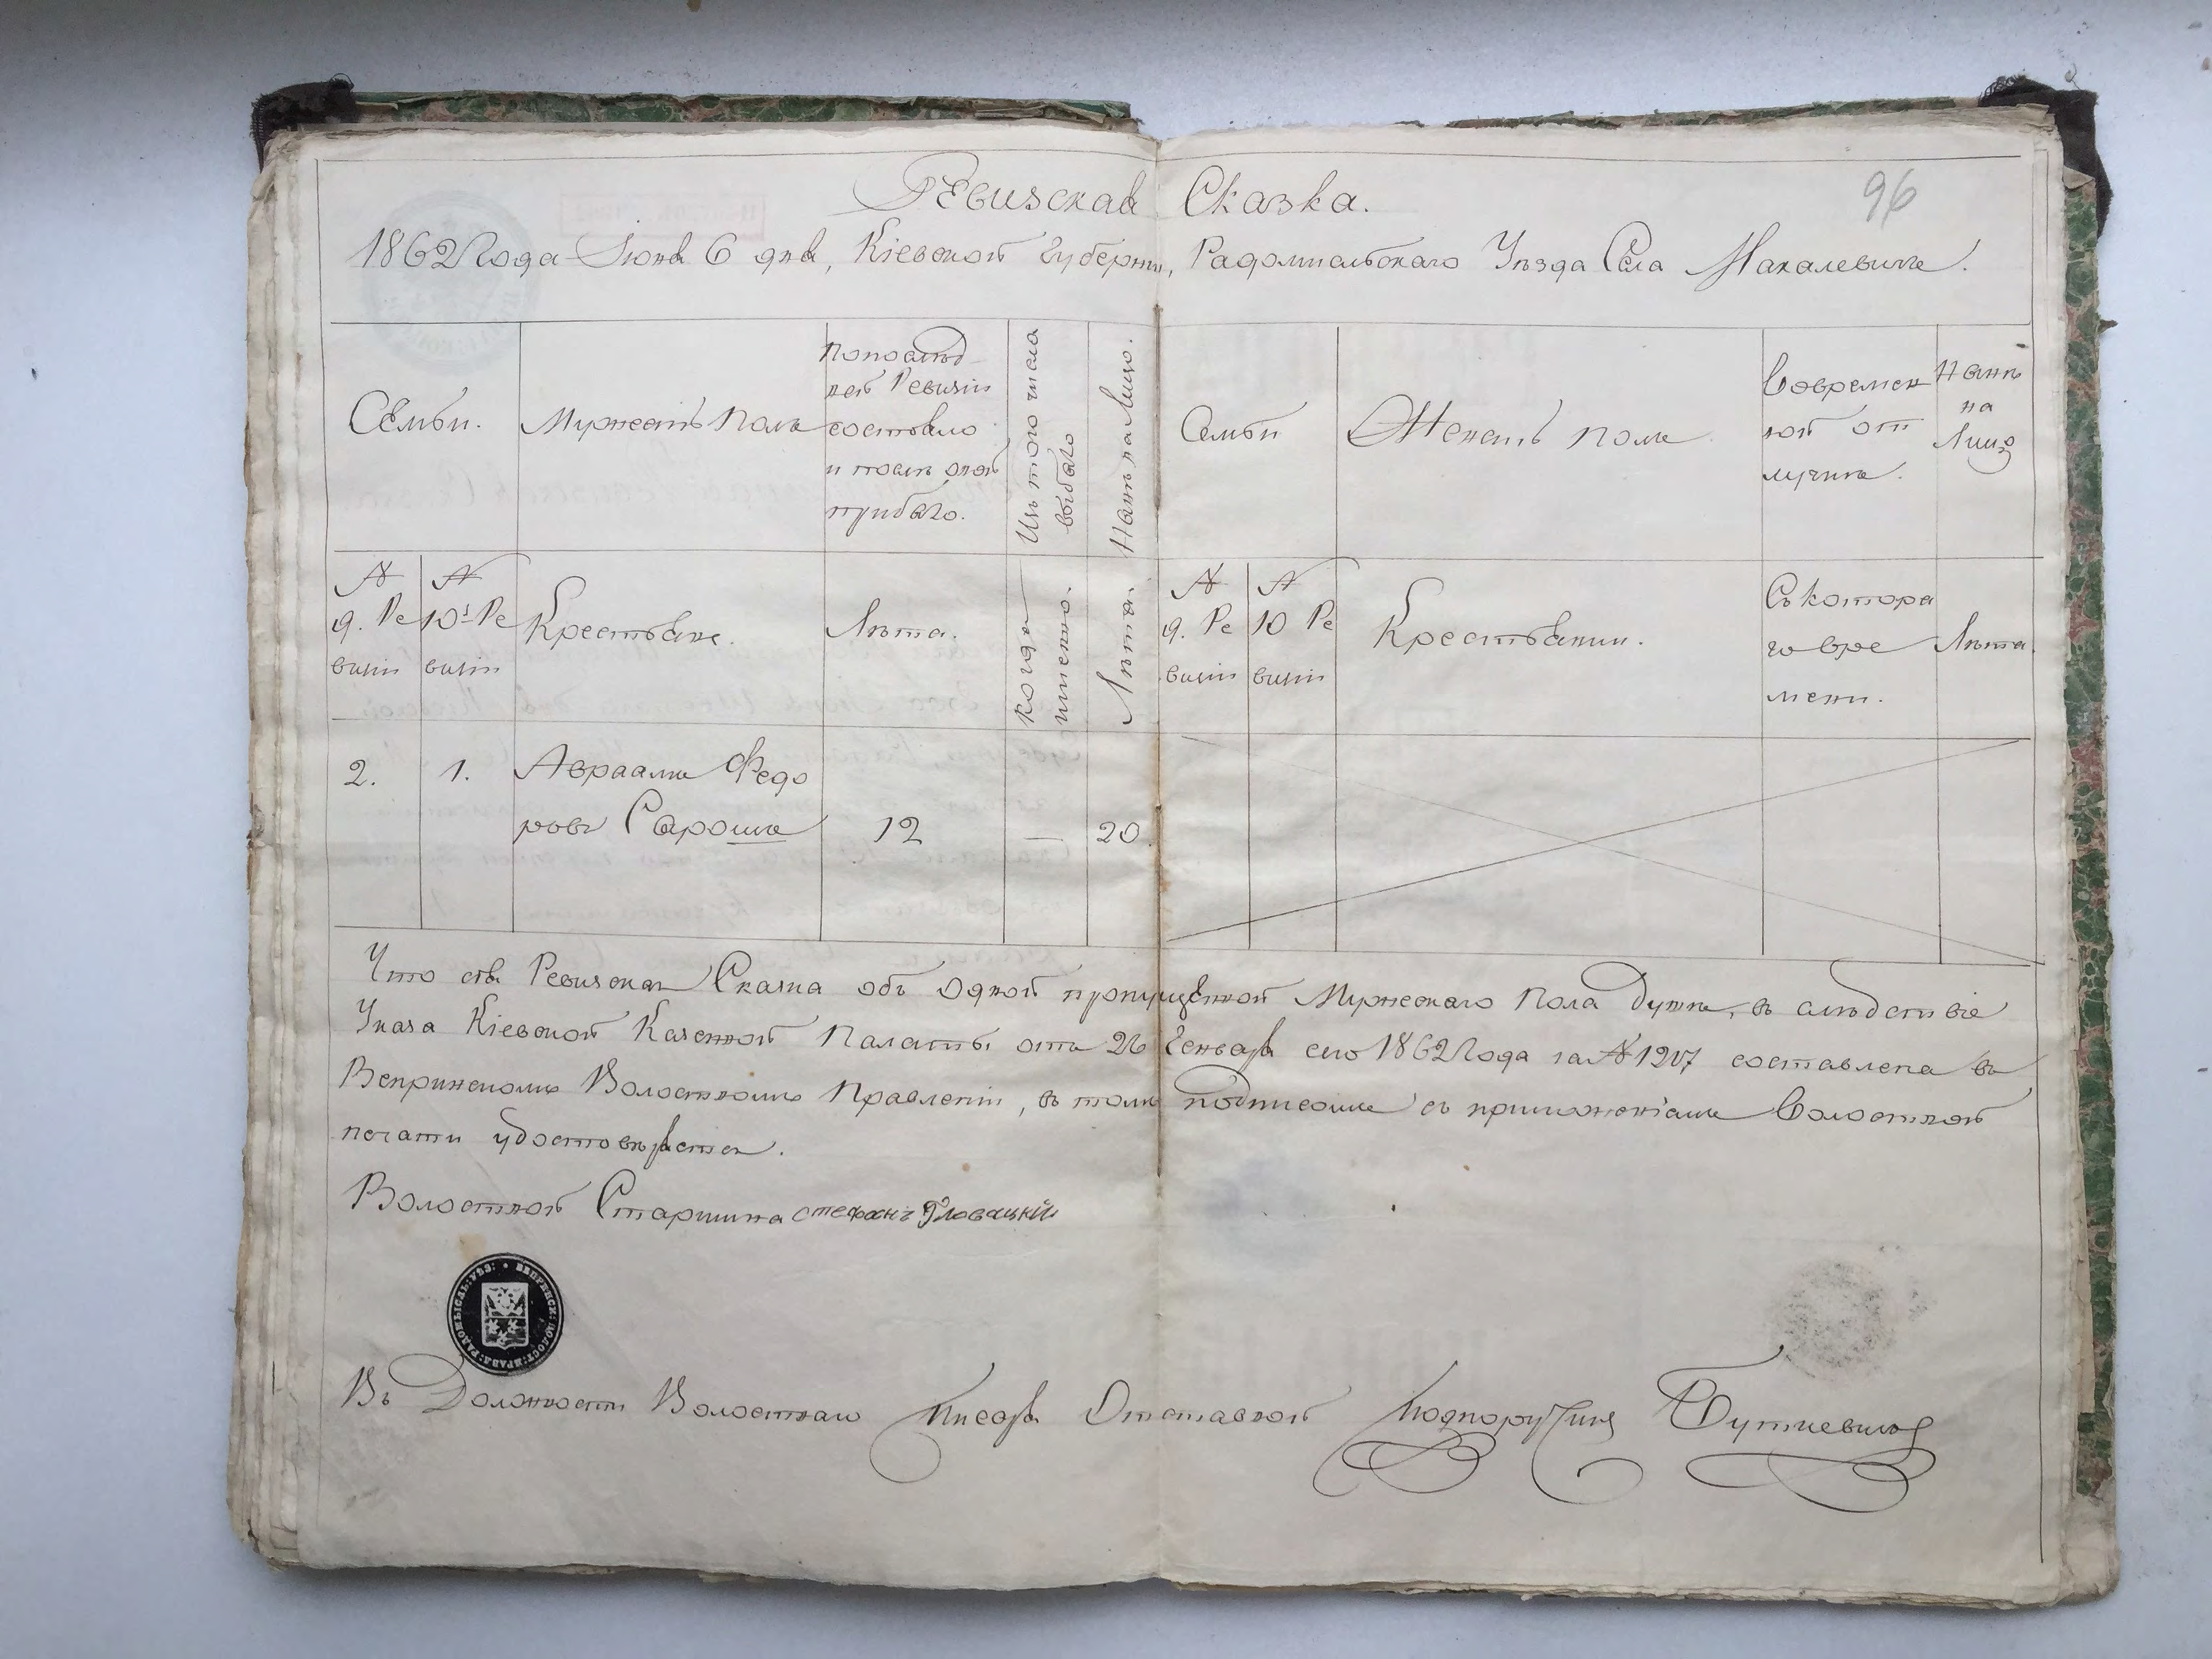 96
Ревизская Сказка.
1862 Года Іюня 6 дня, Кіевской Губерніи, Радомысльскаго Уѣзда Села Макалевичь.
Семьи.
Мужескъ Полъ
По послѣд
ней Ревизіи
состояло
и послѣ оной
прибыло.
Изъ того числа
выбыло
Нынѣ на Лицо.
Семьи
Женскъ полъ
Во времен
ной от
лучкѣ.
Нынѣ
на
Лицо
№
9. Ре
визіи
№
10й Ре
визіи
Крестьяне.
Лѣта.
когда
имѣнно.
Лѣта.
№
9. Ре
визіи
№
10 Ре
визіи
Крестьянки.
Съ котора
го вре
мени.
Лѣта.
2.
1.
Авраамъ Федо
ровъ Сарошъ
12
—
20.
Что сія Ревизская Сказка объ одной пропущенной Мужескаго Пола душѣ, въ слѣдствіе
Указа Кіевской Казенной Палаты отъ 26 Генваря сего 1862 Года за № 1207 составлена въ
Вепринскомъ Волостномъ Правленіи, въ томъ подписомъ съ приложеніемъ Волостной
печати удостовѣряется.
Волостной Старшина Степанъ Гловацкій
ВЕПРИНСК: ВОЛОСТ: ПРАВЛ: РАДОМЫСЛЬ: УѢЗ:
Въ Должности Волостнаго Писаря Отставной Подпоручикъ Буткевичъ